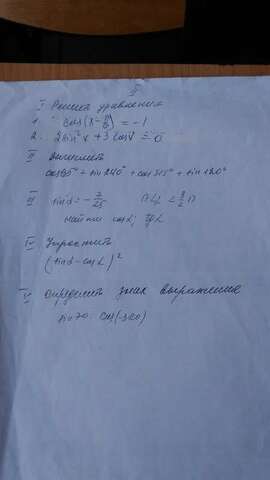 I Решить уравнения
1. cos(x - π/6) = -1
2. 2sin²x + 3cosx = 0
II Вычислить
+ sin 240° + cos 315° + sin 120°
III sinα = -7/25 π<α<3/2 π
Найти cosα; tgα
IV Упростить
(sinα - cosα)²
V Определить знак выражения
sin 70 · cos